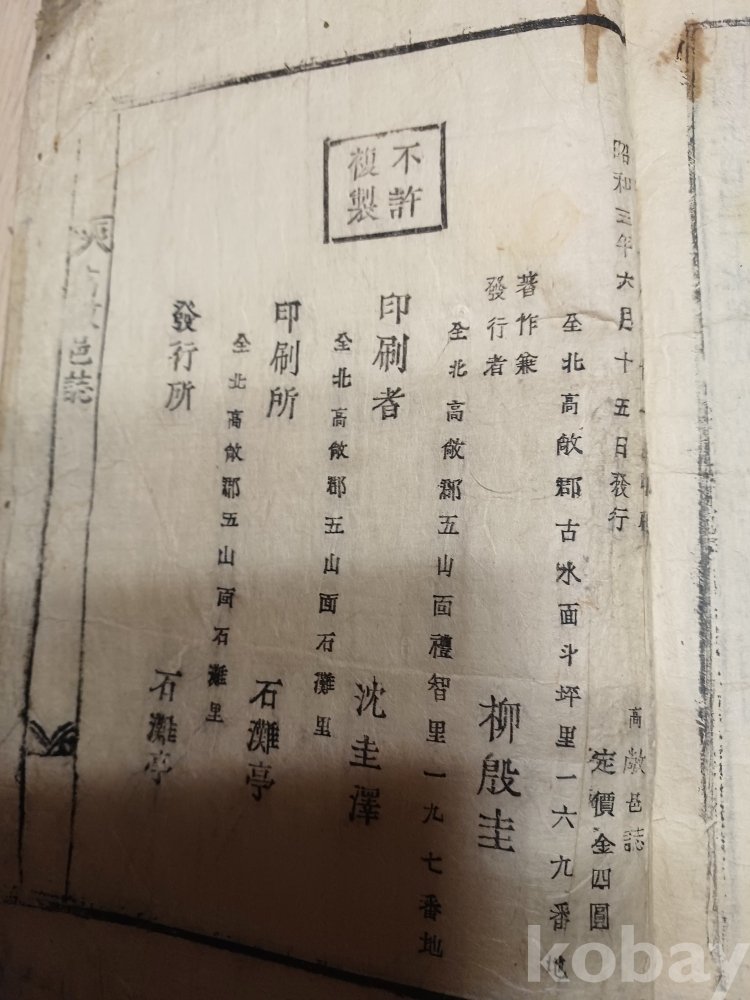 昭和三年六月十五日發行
高敞邑誌
定價金四圓
不許
複製
全北高敞郡古水面斗坪里一六九番地
著作兼
發行者
柳殷圭
全北高敞郡五山面禮智里一九七番地
印刷者
沈圭澤
全北高敞郡五山面石灘里
印刷所
石灘亭
全北高敞郡五山面石灘里
發行所
石灘亭
邑誌
kobay